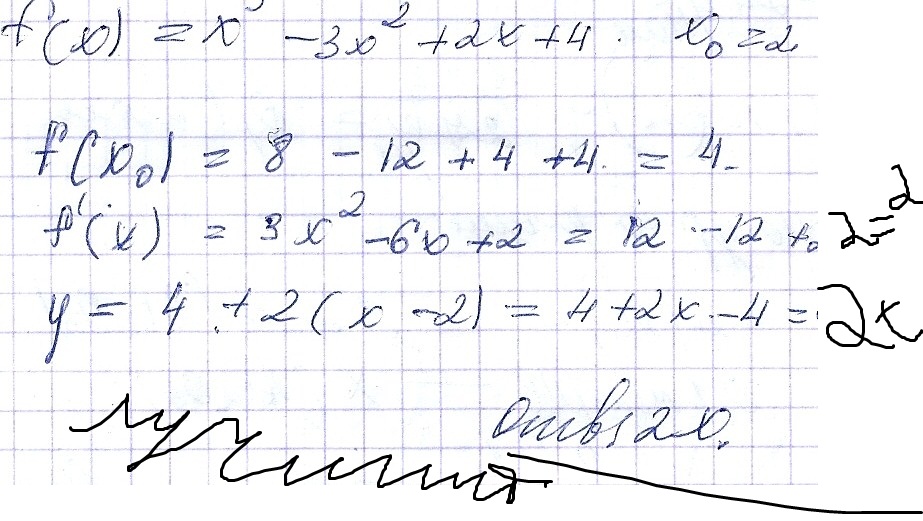 f(x) = x³ - 3x² + 2x + 4. x₀ = 2
f(x₀) = 8 - 12 + 4 + 4 = 4.
f'(x) = 3x² - 6x + 2 = 12 - 12 + 2 = 2
y = 4 + 2(x - 2) = 4 + 2x - 4 = 2x
Ответ 2x.